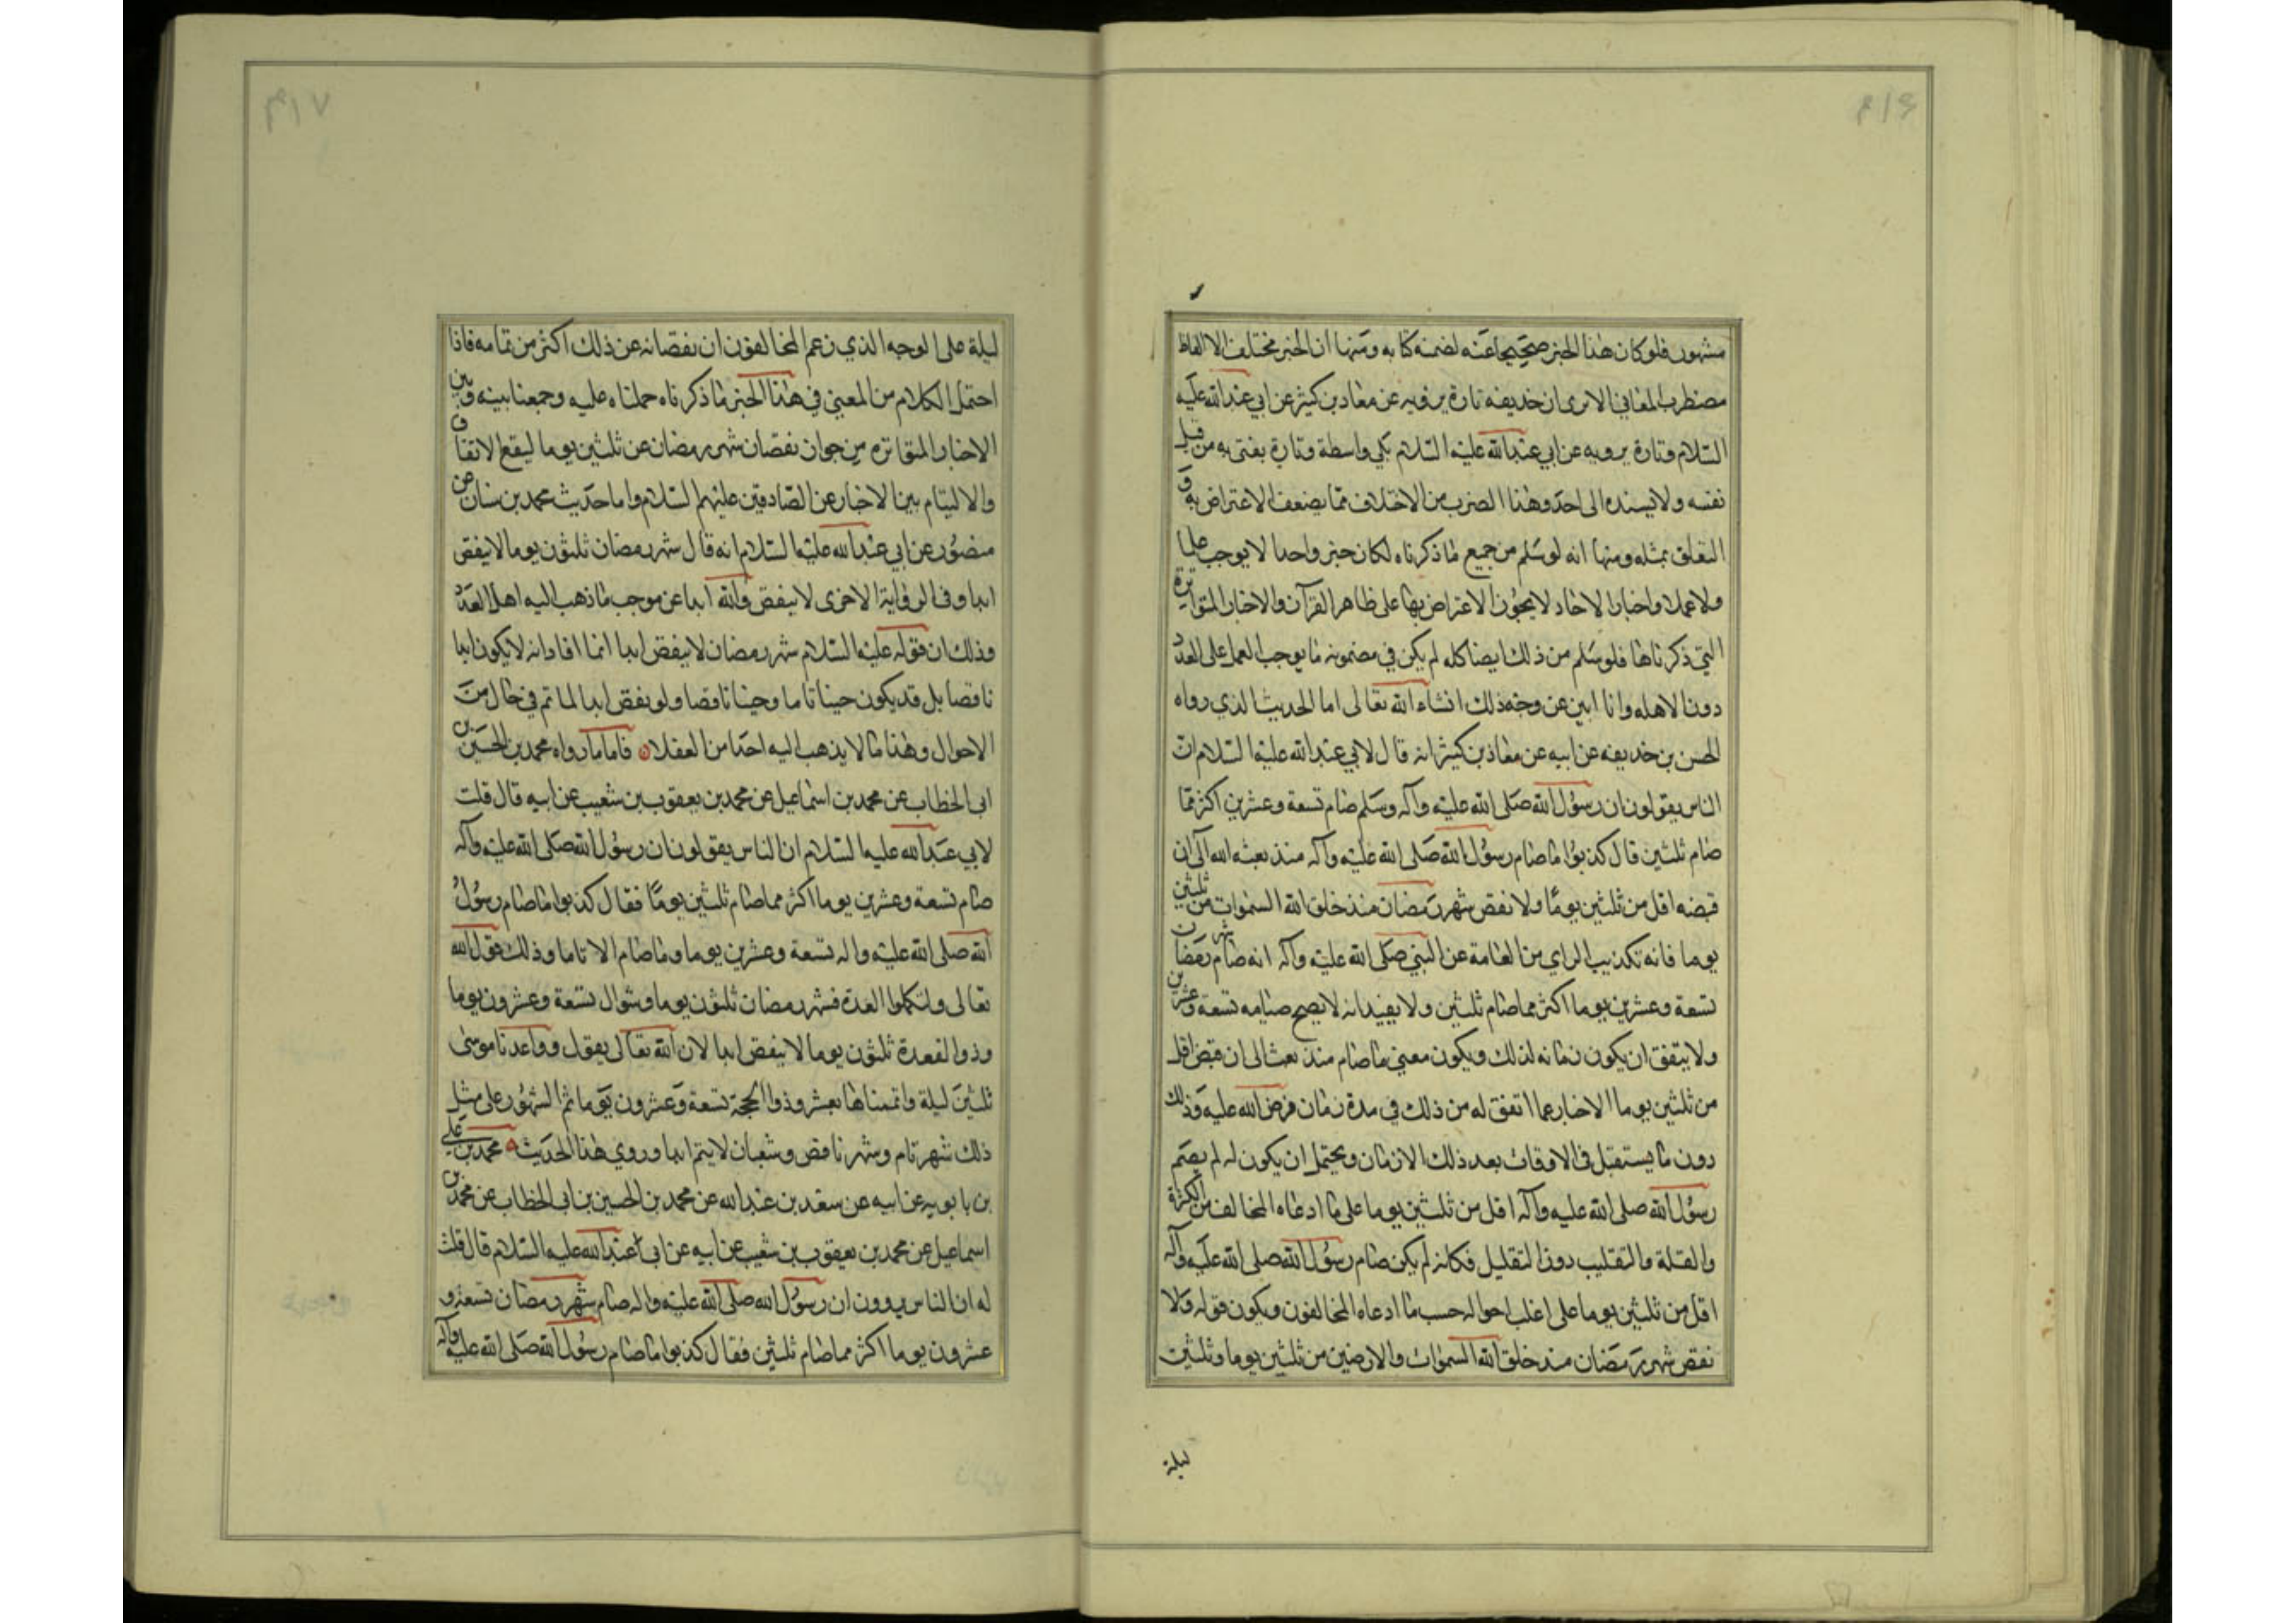 مشهور فلو كان هذا الخبر صحيحا عنه لضمنه كتابه ومنها ان الخبر مختلف الالفاظ
مضطرب المعاني الا ترى ان حذيفة تارة يرويه عن معاذ بن كثير عن ابي عبد الله عليه
السلام وتارة يرويه عن ابي عبد الله عليه السلام بلي واسطة وتارة يفتي به من قبل
نفسه ولا يسنده الى احد وهذا الضرب من الاختلاف مما يضعف الاعتراض به و
التعلق بمثله ومنها انه لو سلم من جميع ما ذكرناه لكان خبر واحدا لا يوجب علما
ولا عملا واخبار الاحاد لا يجوز الاعتراض بها على ظاهر القرآن والاخبار المتواترة
التي ذكرناها فلو سلم من ذلك ايضا كله لم يكن في مضمونه ما يوجب العمل على العدد
دون الاهله وانا ابين عن وجه ذلك انشاء الله تعالى اما الحديث الذي رواه
الحسن بن حذيفه عن ابيه عن معاذ بن كثير انه قال لابي عبد الله عليه السلام ان
الناس يقولون ان رسول الله صلى الله عليه وآله وسلم صام تسعة وعشرين اكثر مما
صام ثلثين قال كذبوا ما صام رسول الله صلى الله عليه وآله منذ بعثه الله الى ان
قبضه اقل من ثلثين يوما ولا نقص شهر رمضان منذ خلق الله السموات من ثلثين
يوما فانه تكذيب الراي من العامة عن النبي صلى الله عليه وآله انه صام شهر رمضان
تسعة وعشرين يوما اكثر مما صام ثلثين ولا يفيد انه لا يصح صيامه تسعة وعشرين
ولا يتفق ان يكون زمانه لذلك ويكون معنى ما صام منذ بعث الى ان قبض اقل
من ثلثين يوما الاخبار عما اتفق له من ذلك في مدة زمان فرض الله عليه وذلك
دون ما يستقبل في الاوقات بعد ذلك الازمان ويحتمل ان يكون له لم يصم
رسول الله صلى الله عليه وآله اقل من ثلثين يوما على ما ادعاه المخالف من الكثرة
والقلة والتقليب دون التقليل فكانه لم يكن صام رسول الله صلى الله عليه وآله
اقل من ثلثين يوما على اغلب احواله حسب ما ادعاه المخالفون ويكون قوله ولا
نقص شهر رمضان منذ خلق الله السموات والارضين من ثلثين يوما وثلثين
ليلة
ليلة على الوجه الذي زعم المخالفون ان نقصانه عن ذلك اكثر من تمامه فاذا
احتمل الكلام من المعنى في هذا الخبر ما ذكرناه حملناه عليه وجمعنا بينه وبين
الاخبار المتواتره من جواز نقصان شهر رمضان عن ثلثين يوما ليقع الاتفاق
والاليتام بين الاخبار عن الصادقين عليهم السلام واما حديث محمد بن سنان عن
منصور عن ابي عبد الله عليه السلام انه قال شهر رمضان ثلثون يوما لا ينقص
ابدا وفي الرواية الاخرى لا ينقص والله ابدا عن موجب ما ذهب اليه اهل العدد
وذلك ان قوله عليه السلام شهر رمضان لا ينقص ابدا انما افاد انه لا يكون ابدا
ناقصا بل قد يكون حينا تاما وحينا ناقصا ولو نقص ابدا لما تم في حال من
الاحوال وهذا ما لا يذهب اليه احد من العقلاء فاما ما رواه محمد بن الحسين بن
ابى الخطاب عن محمد بن اسماعيل عن محمد بن يعقوب بن شعيب عن ابيه قال قلت
لابي عبد الله عليه السلام ان الناس يقولون ان رسول الله صلى الله عليه وآله
صام تسعة وعشرين يوما اكثر مما صام ثلثين يوما فقال كذبوا ما صام رسول
الله صلى الله عليه واله تسعة وعشرين يوما وما صام الا تاما وذلك قول الله
تعالى ولتكملوا العدة فشهر رمضان ثلثون يوما وشوال تسعة وعشرون يوما
وذوالقعدة ثلثون يوما لا ينقص ابدا لان الله تعالى يقول وواعدنا موسى
ثلثين ليلة واتممناها بعشر وذوالحجة تسعة وعشرون يوما ثم الشهور على مثل
ذلك شهر تام وشهر ناقص وشعبان لا يتم ابدا وروي هذا الحديث محمد بن علي
بن بابويه عن ابيه عن سعد بن عبد الله عن محمد بن الحسين بن ابى الخطاب عن محمد بن
اسماعيل عن محمد بن يعقوب بن شعيب عن ابيه عن ابى عبد الله عليه السلام قال قلت
له ان الناس يروون ان رسول الله صلى الله عليه واله صام شهر رمضان تسعة و
عشرون يوما اكثر مما صام ثلثين فقال كذبوا ما صام رسول الله صلى الله عليه وآله